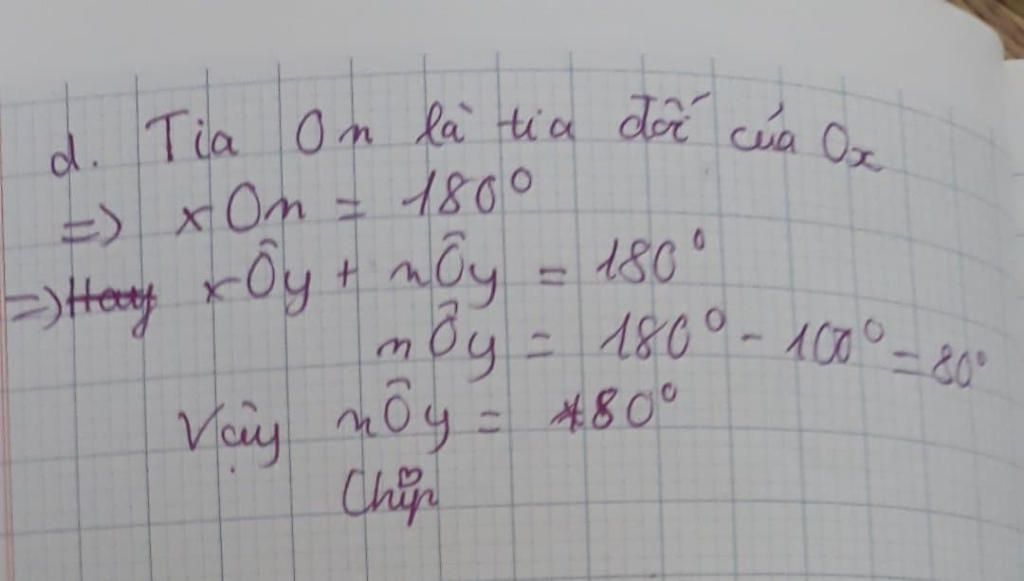 d. Tia On là tia đối của Ox
=> xOn = 180°
=> Hay xÔy + nÔy = 180°
nÔy = 180° - 100° = 80°
Vậy nÔy = 80°
Chíp